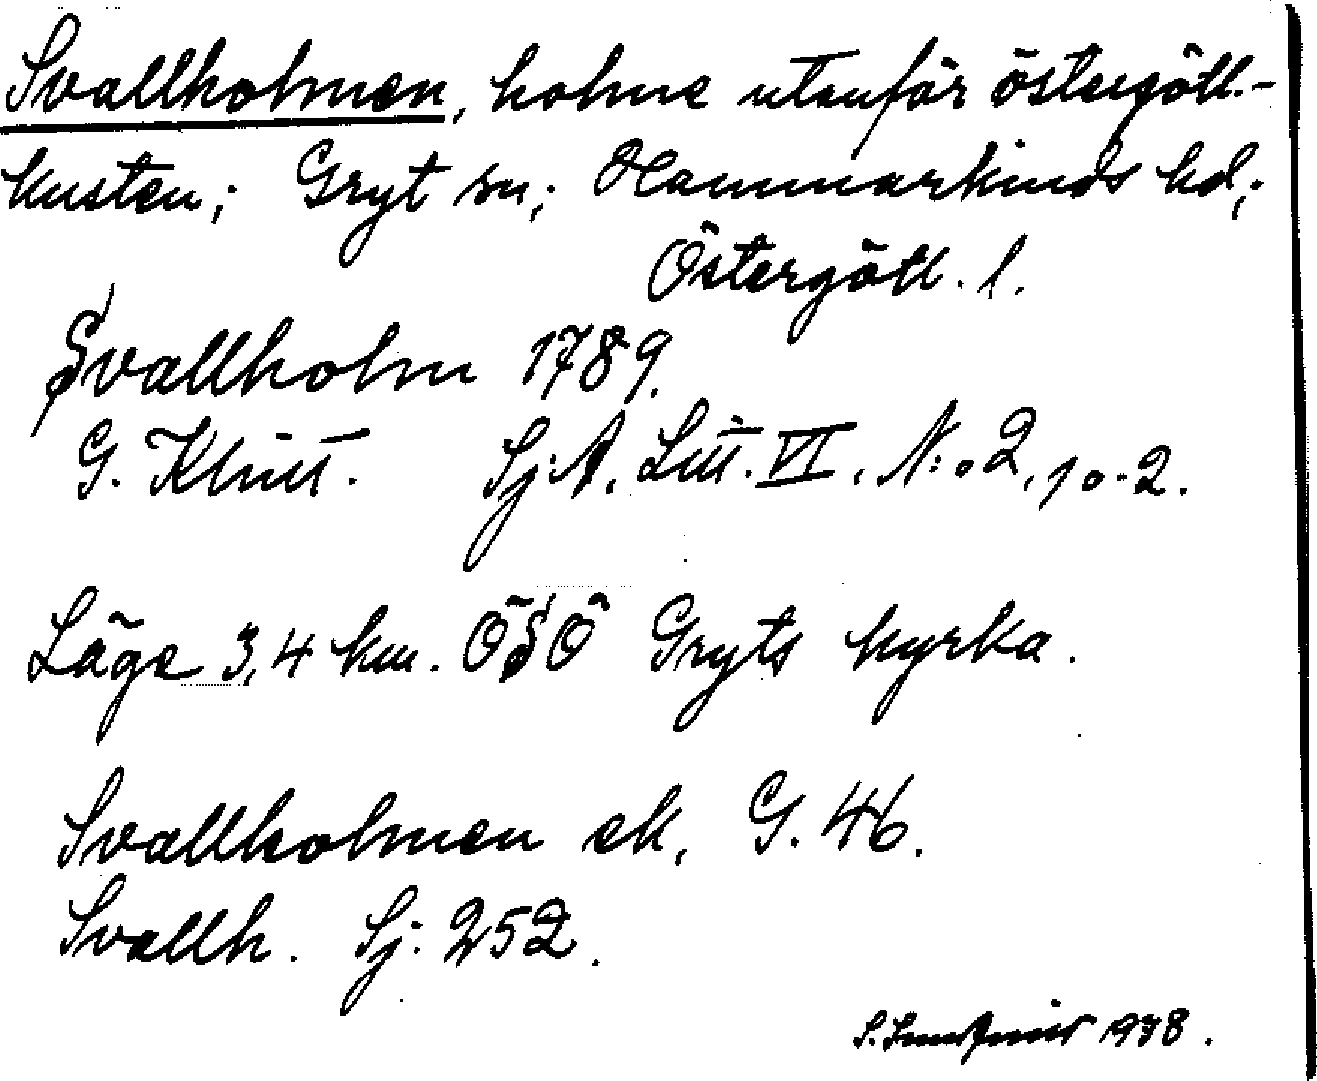 Svallholmen, holme utanför östergötl.-
kusten; Gryt sn; Hammarkinds hd;
Östergötl. l.
Svallholm 1789.
G. Klint. Sj:A. Litt. VI. N:o 2, 10-2.
Läge 3,4 km. ÖSÖ Gryts kyrka.
Svallholmen ek. G. 46.
Svallh. Sj: 252.
1938.